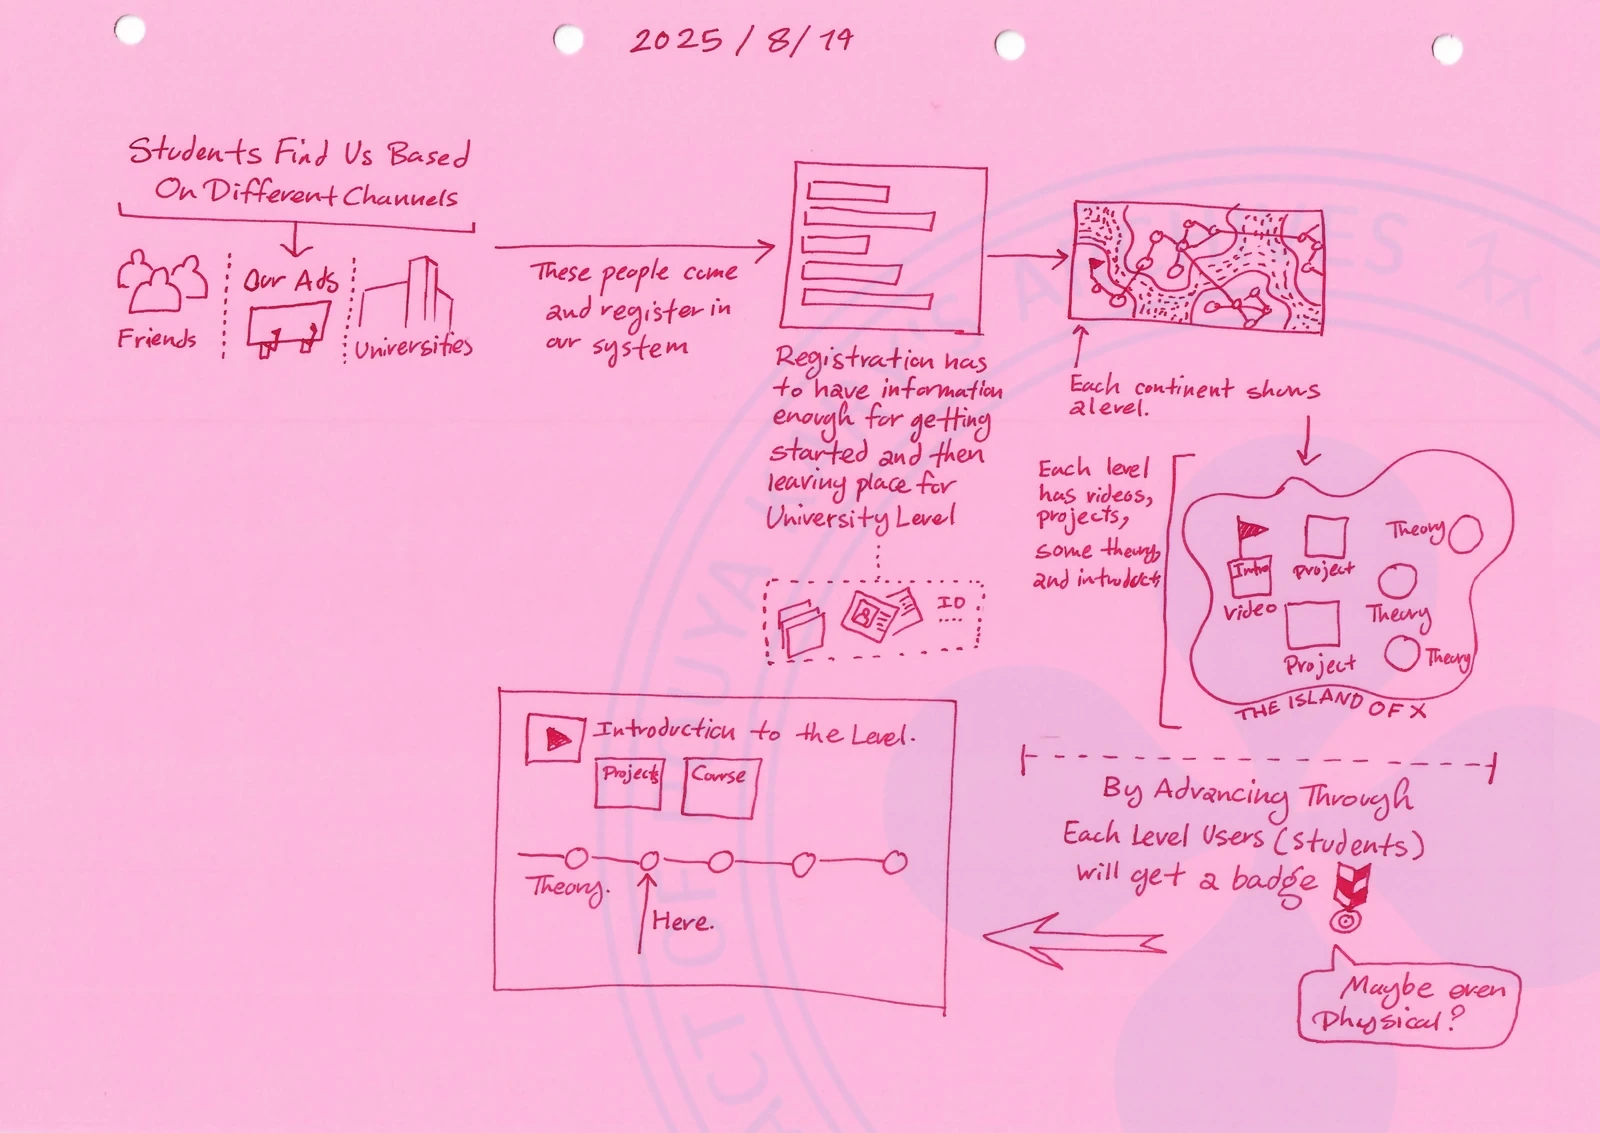 2025/8/19
Students Find Us Based
On Different Channels
Friends
Our Ads
Universities
These people come
and register in
our system
Registration has
to have information
enough for getting
started and then
leaving place for
University Level
ID
Each continent shows
a level.
Each level
has videos,
projects,
some theory,
and introduct
Intro
Video
Project
Project
Theory
Theory
Theory
THE ISLAND OF X
By Advancing Through
Each Level Users (students)
will get a badge
Maybe even
Physical?
Introduction to the Level.
Projects
Course
Theory.
Here.